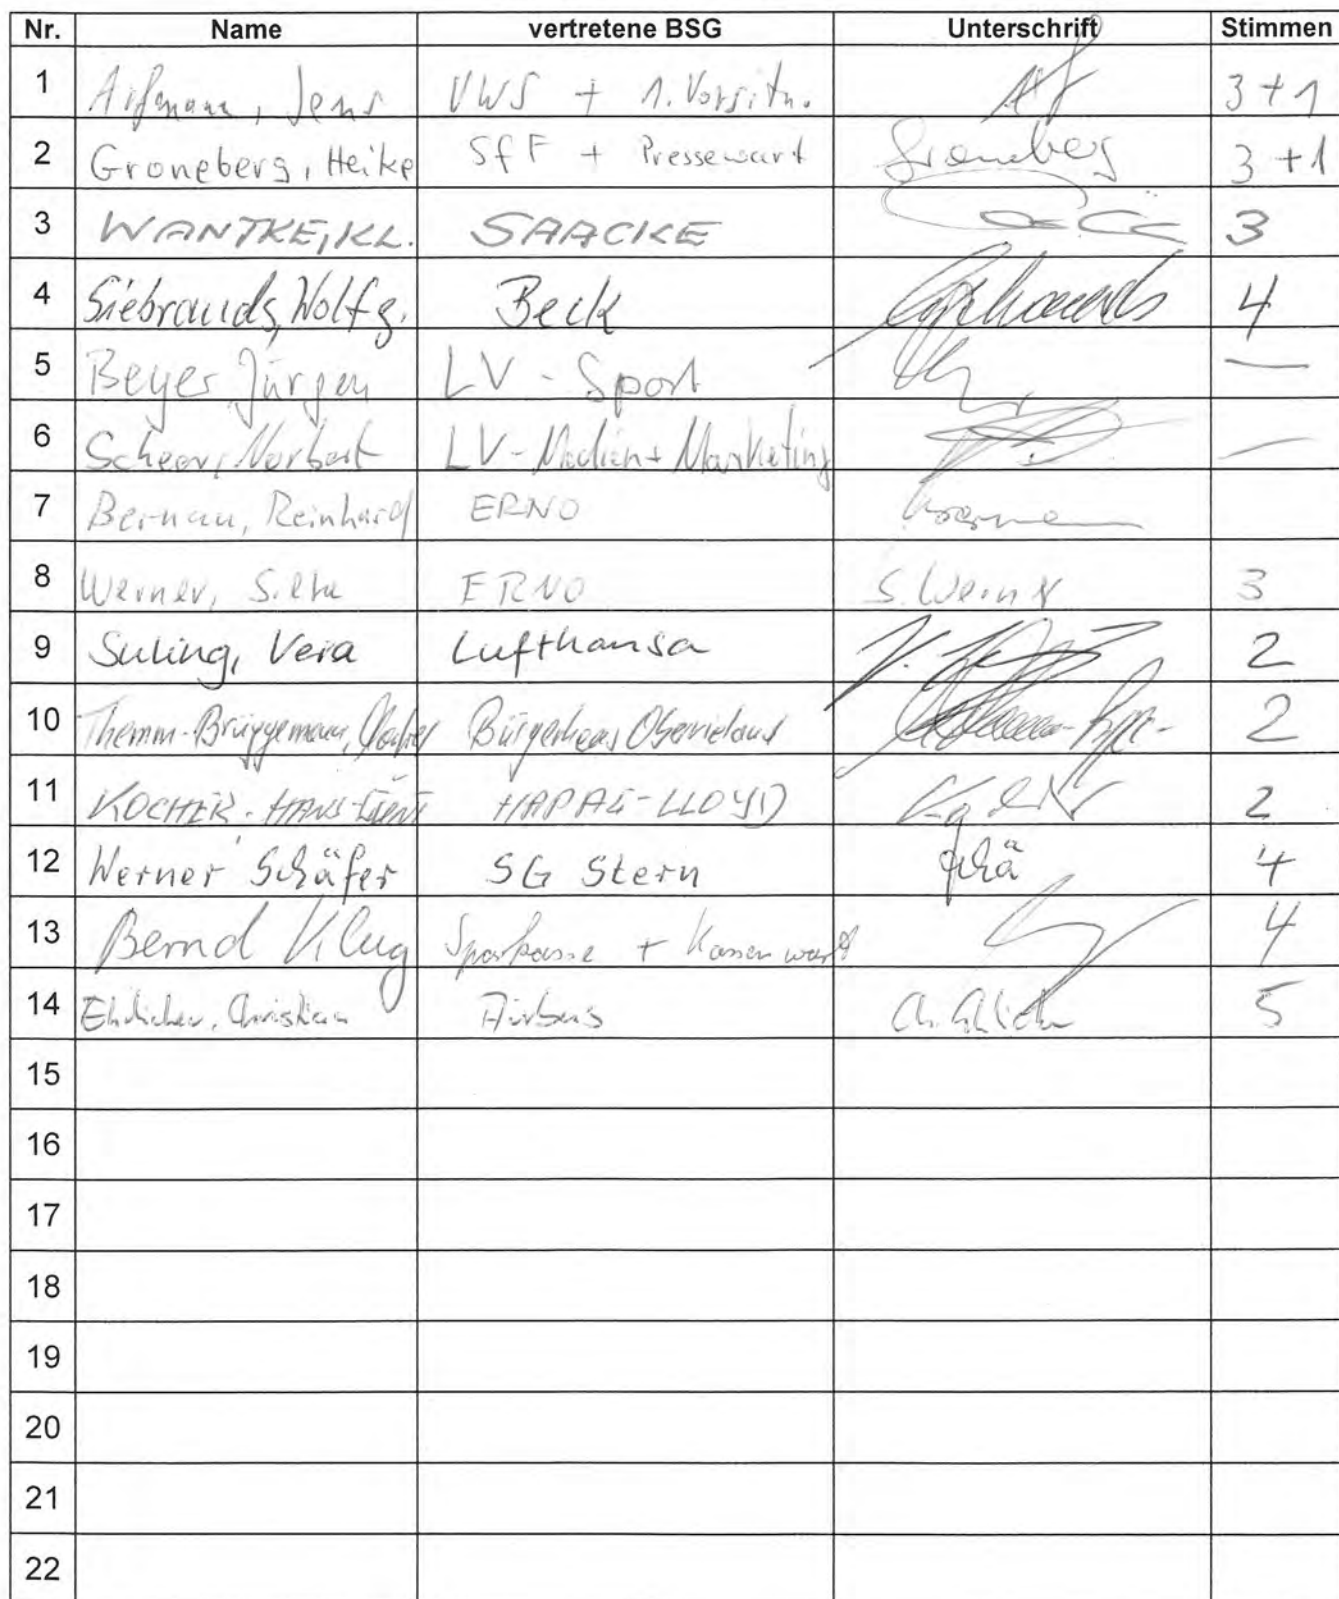 Nr. Name vertretene BSG Unterschrift Stimmen
1 Jens VWS + 1. Vorsitn. 3+1
2 Groneberg, Heike SfF + Pressewart Groneberg 3+1
3 WANTKE, KL. SAACKE 3
4 Siebrands, Wolfg. Beck 4
5 Beyer Jürgen LV - Sport —
6 Scheer, Norbert LV - Medien + Marketing —
7 Bernau, Reinhard ERNO
8 Werner, Silke ERNO S. Werner 3
9 Suling, Vera Lufthansa 2
10 Themm-Brüggemann, Bürgerhaus Obervieland 2
11 KOCHER - HANS- HAPAG-LLOYD 2
12 Werner Schäfer SG Stern Schä 4
13 Bernd Klug Sparkasse + Kassenwart 4
14 Ehrlicher, Christian Airbus 5
15
16
17
18
19
20
21
22